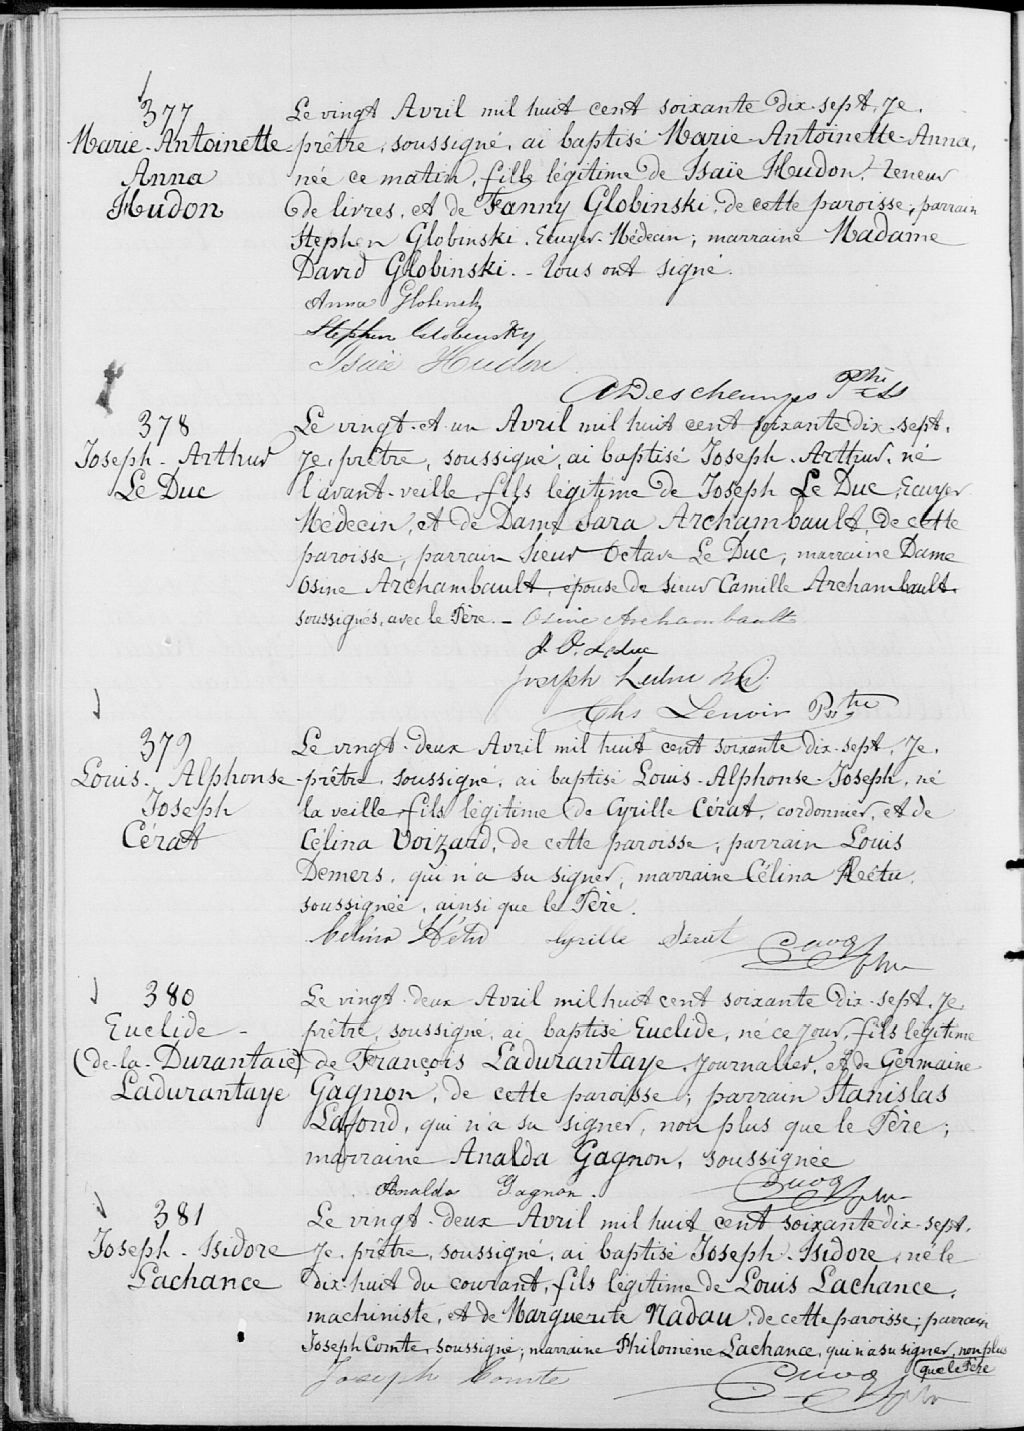 377
Marie-Antoinette
Anna
Hudon
Le vingt Avril mil huit cent soixante dix-sept, Je,
prêtre, soussigné, ai baptisé Marie-Antoinette-Anna,
née ce matin, fille légitime de Isaïe Hudon, teneur
de livres, et de Fanny Globinski, de cette paroisse; parrain
Stephen Globinski, Ecuyer-Médecin; marraine Madame
David Globinski. - Tous ont signé.
Anna Globensky
Stephen Globensky
Isaïe Hudon
A Deschamps Ptre
378
Joseph-Arthur
Le Duc
Le vingt-et-un Avril mil huit cent soixante dix-sept,
Je, prêtre, soussigné, ai baptisé Joseph-Arthur, né
l'avant-veille, fils légitime de Joseph Le Duc, Ecuyer
Médecin, et de Dame Sara Archambault, de cette
paroisse; parrain Sieur Octave Le Duc; marraine Dame
Osine Archambault, épouse de sieur Camille Archambault.
soussignés, avec le Père. - Osine Archambault
J. O. Leduc
Joseph Leduc M.D.
Chs Lenoir Ptre
379
Louis-Alphonse
Joseph
Cérat
Le vingt-deux Avril mil huit cent soixante dix-sept, Je,
prêtre, soussigné, ai baptisé Louis-Alphonse-Joseph, né
la veille, fils légitime de Cyrille Cérat, cordonnier, et de
Célina Voizard, de cette paroisse; parrain Louis
Demers, qui n'a su signer; marraine Célina Héétu,
soussignée, ainsi que le Père.
Celina Hétu Cyrille Serat Cuoq
ptre
380
Euclide-
(de-la-Durantaie)
Ladurantaye
Le vingt-deux Avril mil huit cent soixante dix-sept, Je,
prêtre, soussigné, ai baptisé Euclide, né ce jour, fils légitime
de François Ladurantaye, Journalier, et de Germaine
Gagnon, de cette paroisse; parrain Stanislas
Lafond, qui n'a su signer, non plus que le Père;
marraine Analda Gagnon, soussignée
Analda Gagnon. Cuoq ptre
381
Joseph-Isidore
Lachance
Le vingt-deux Avril mil huit cent soixante dix-sept,
Je, prêtre, soussigné, ai baptisé Joseph-Isidore, né le
dix-huit du courant, fils légitime de Louis Lachance,
machiniste, et de Marguerite Nadau, de cette paroisse; parrain
Joseph Comte, soussigné; marraine Philomène Lachance, qui n'a su signer, non plus
que le Père
Joseph Comte Cuoq ptre